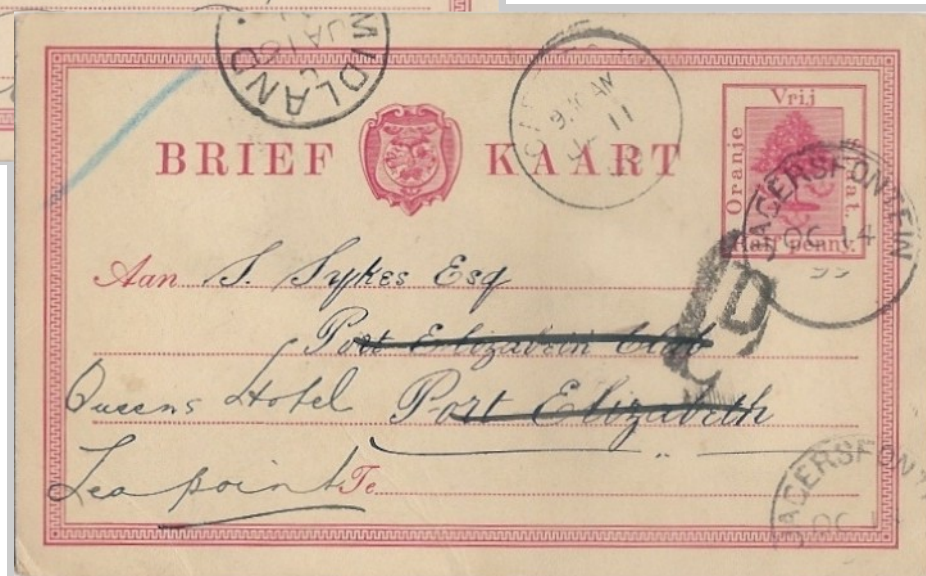 MIDLAND
JA 16
BRIEF KAART
Vrij
Oranje
Staat.
Half penny.
JAGERSFONTEIN
OC 14
Aan S. Sykes Esq
Port Elizabeth Club
Queens Hotel Port Elizabeth
Sea point Te
JAGERSFON
OC 14